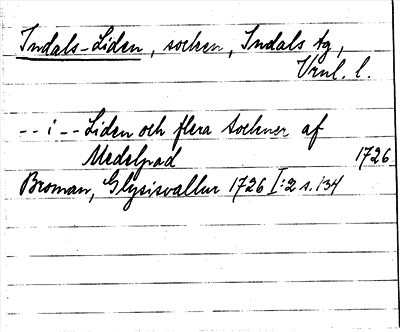 Indals-Liden, socken, Indals tg,
Vrnl. l.
-- i -- Liden och flera Sockner af
Medelpad 1726
Broman, Glysisvallur 1726 I:2 s. 134